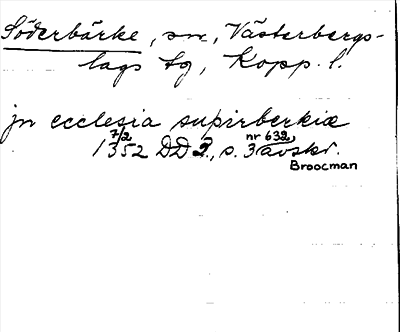 Söderbärke, sn, Västerbergs-
lags tg, Kopp. l.
jn ecclesia supirberkiæ
7/2 nr 632,
1352 DD 2, s. 3 avskr.
Broocman